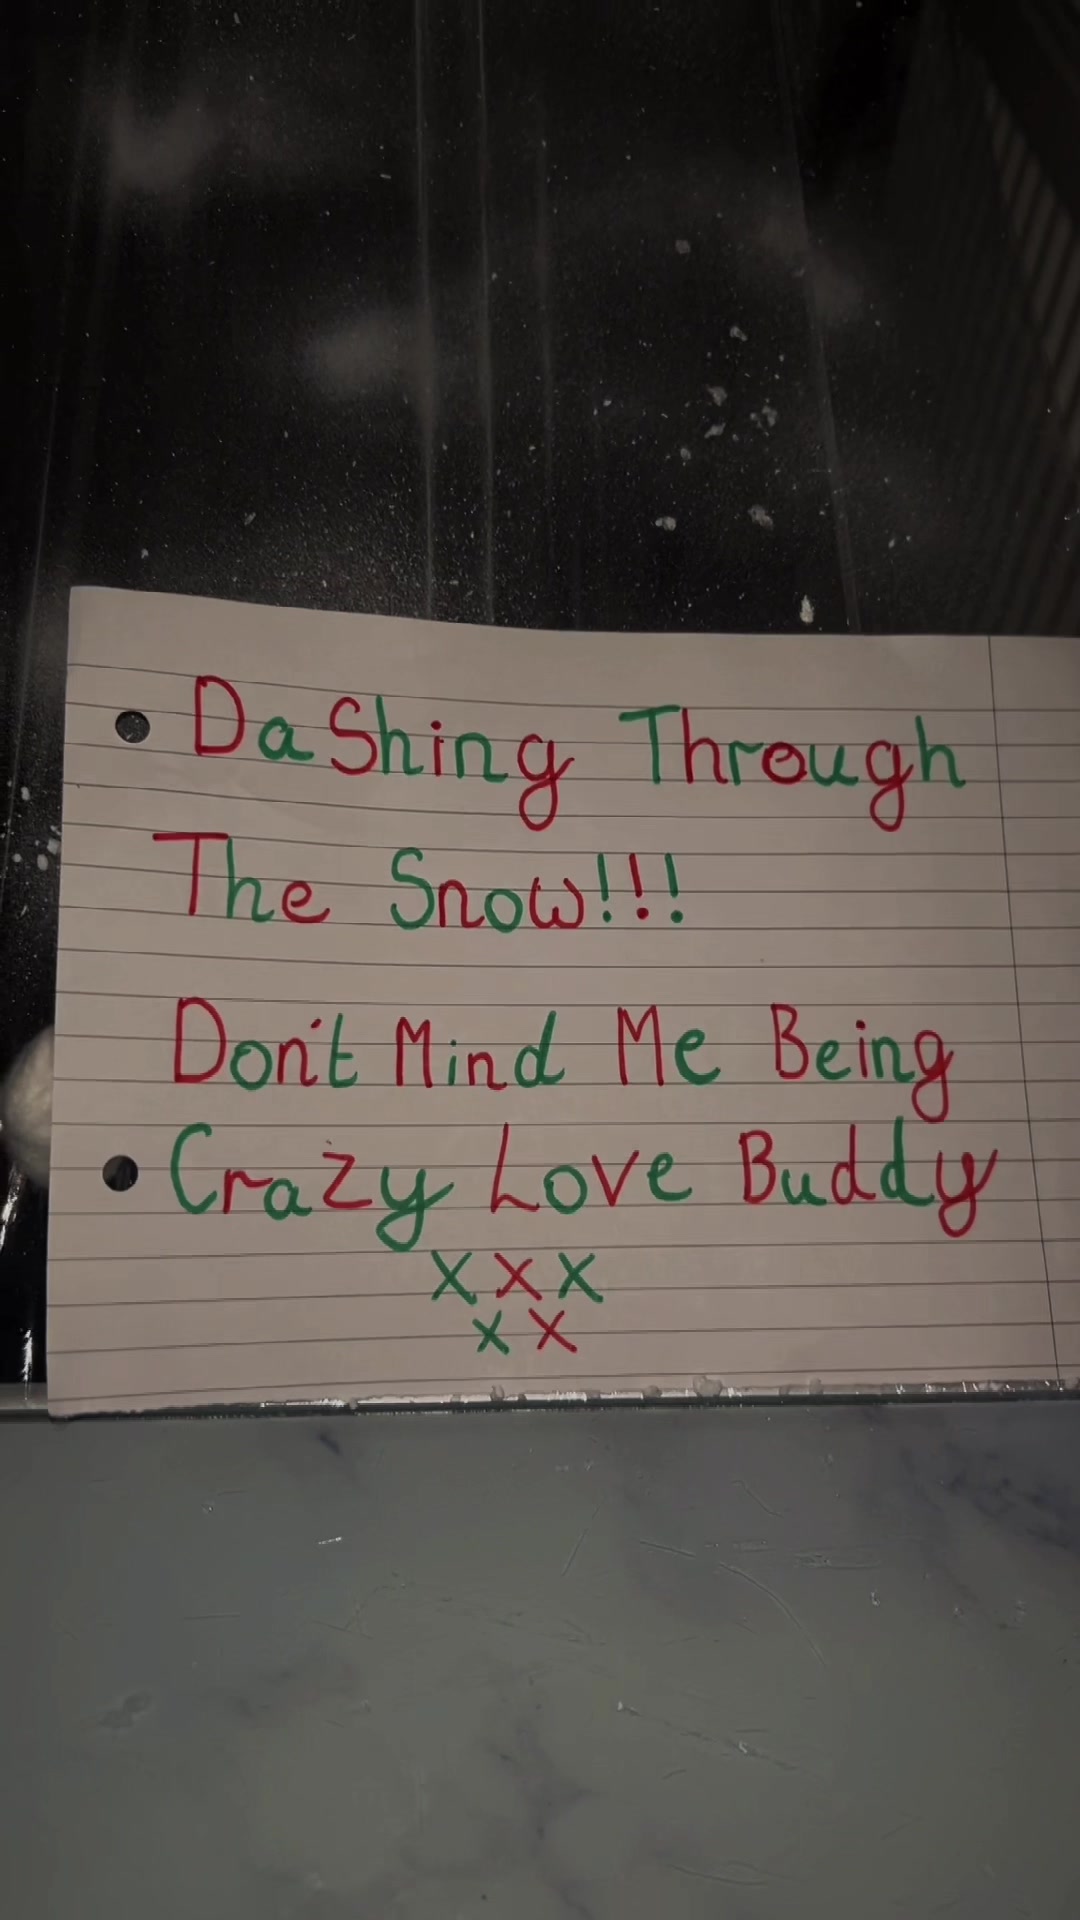 DaShing Through
The Snow!!!
Don't Mind Me Being
Crazy Love Buddy
X X X
X X